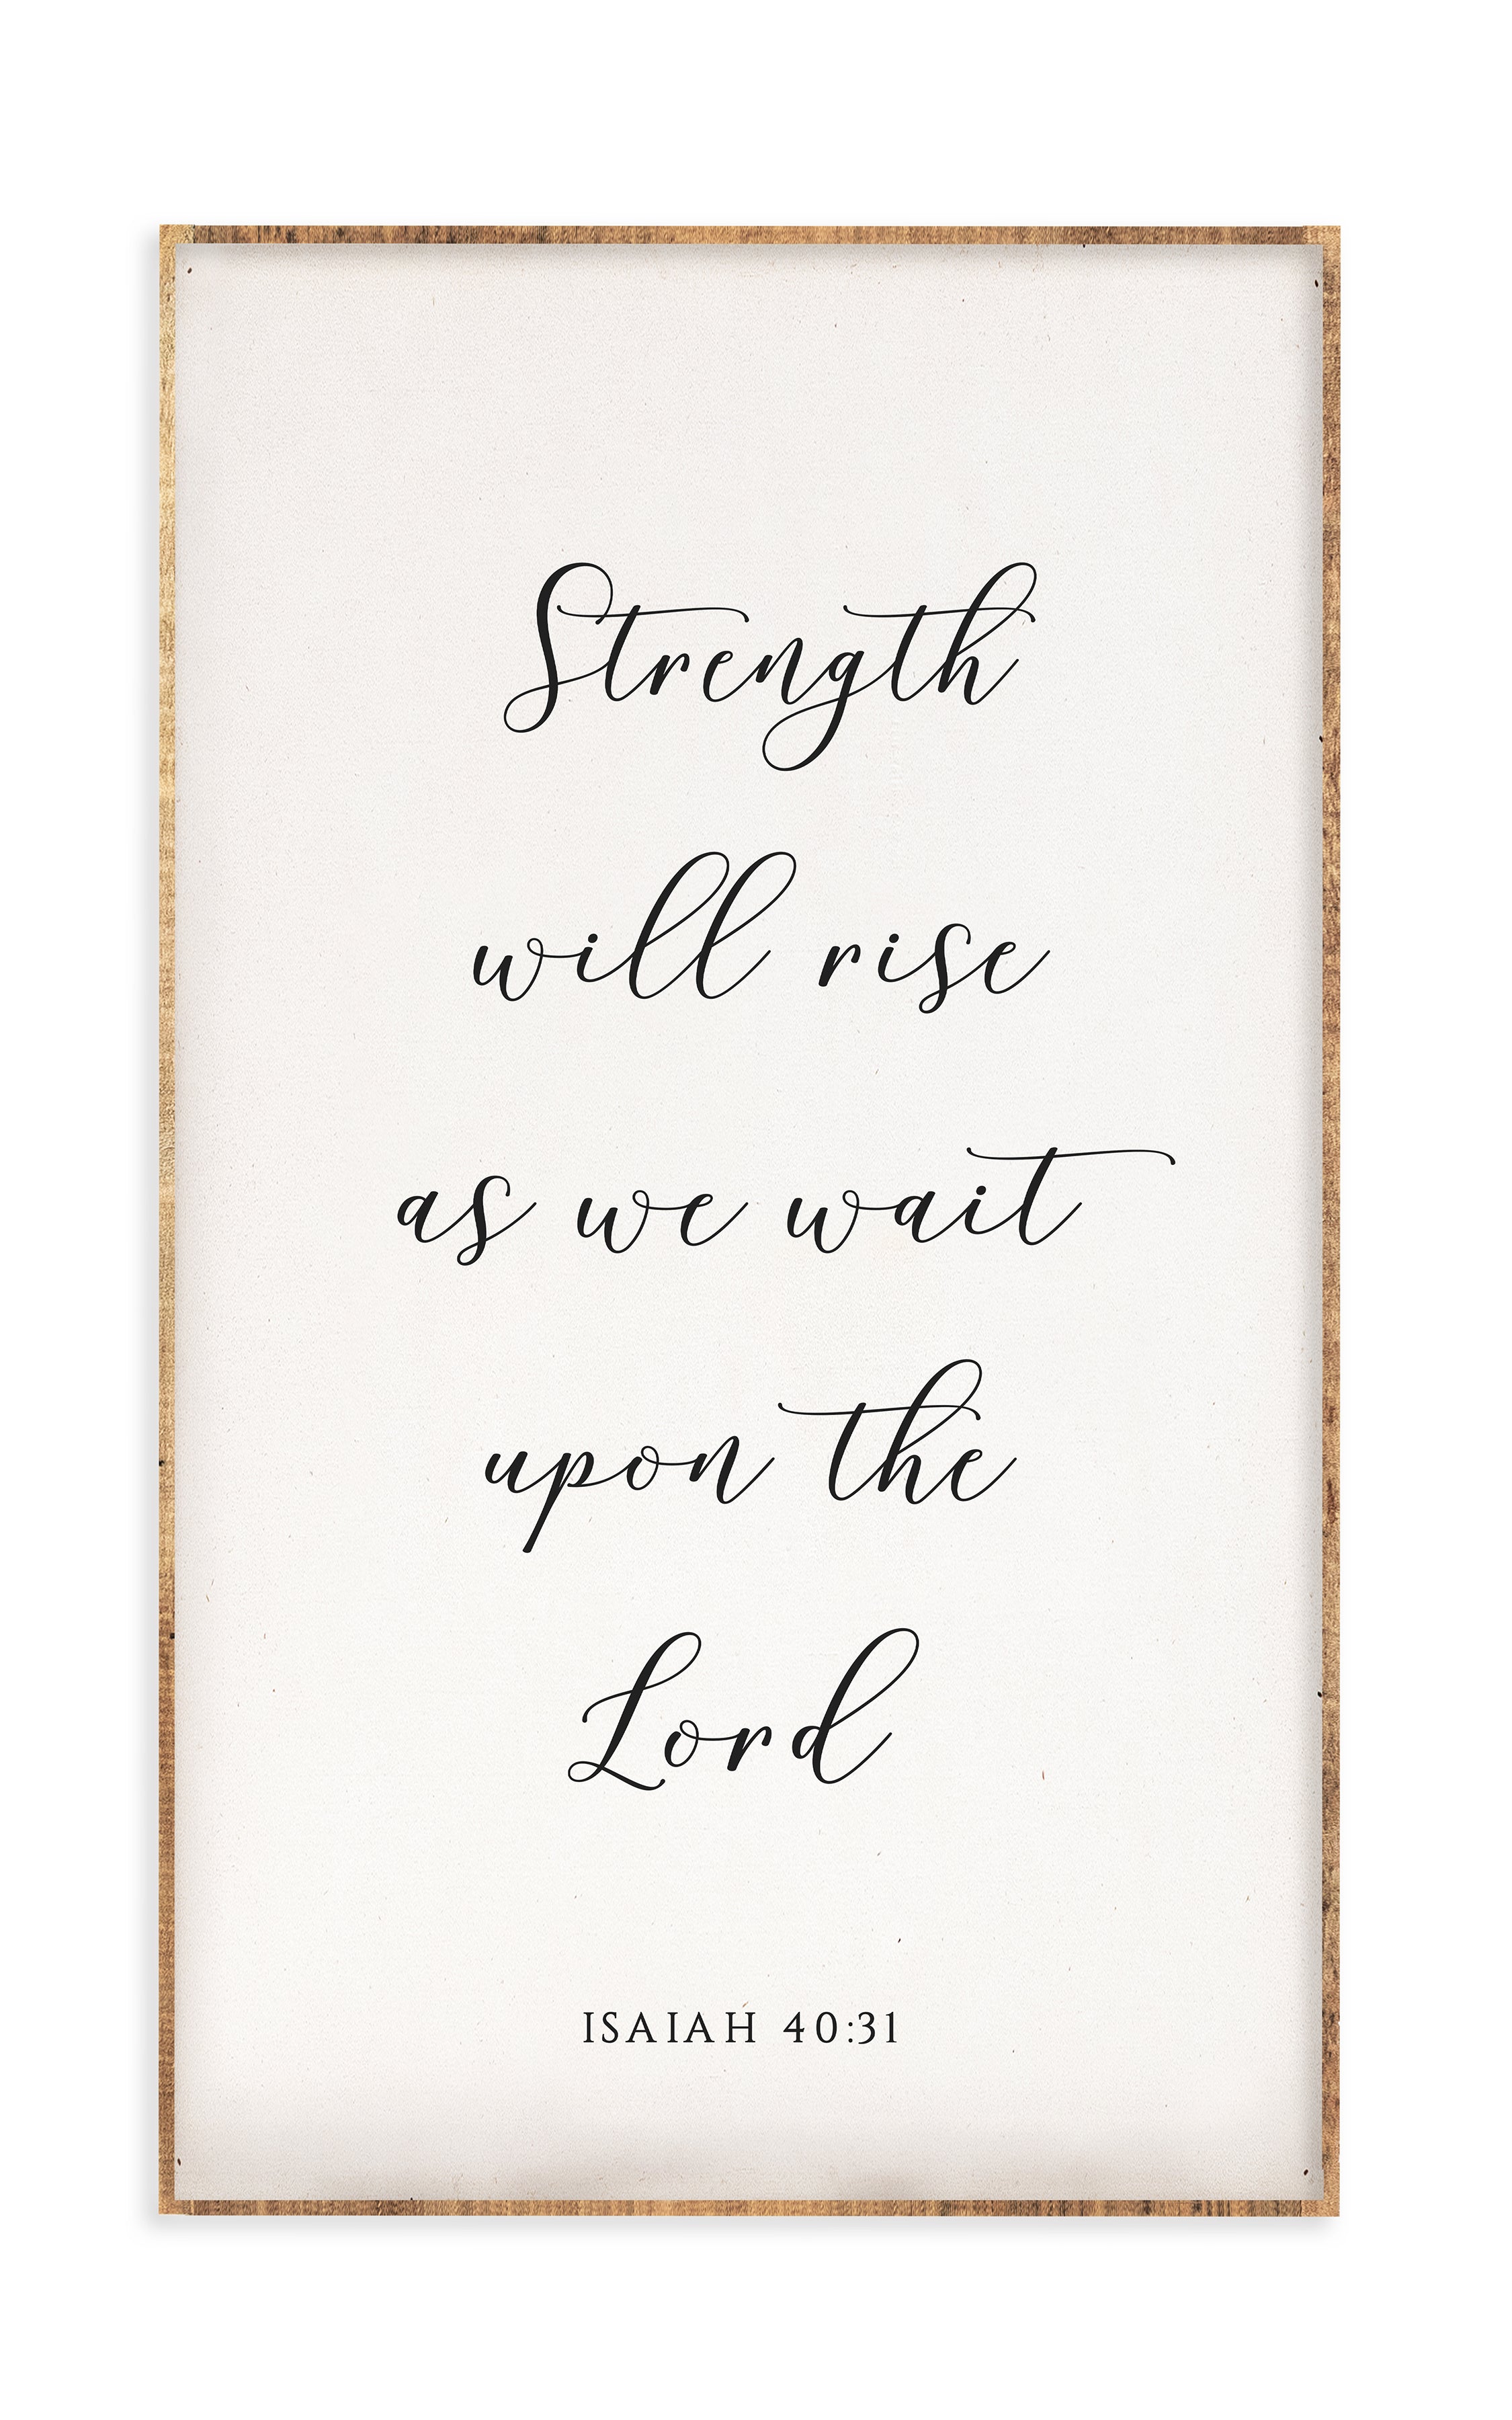 Strength
will rise
as we wait
upon the
Lord
ISAIAH 40:31